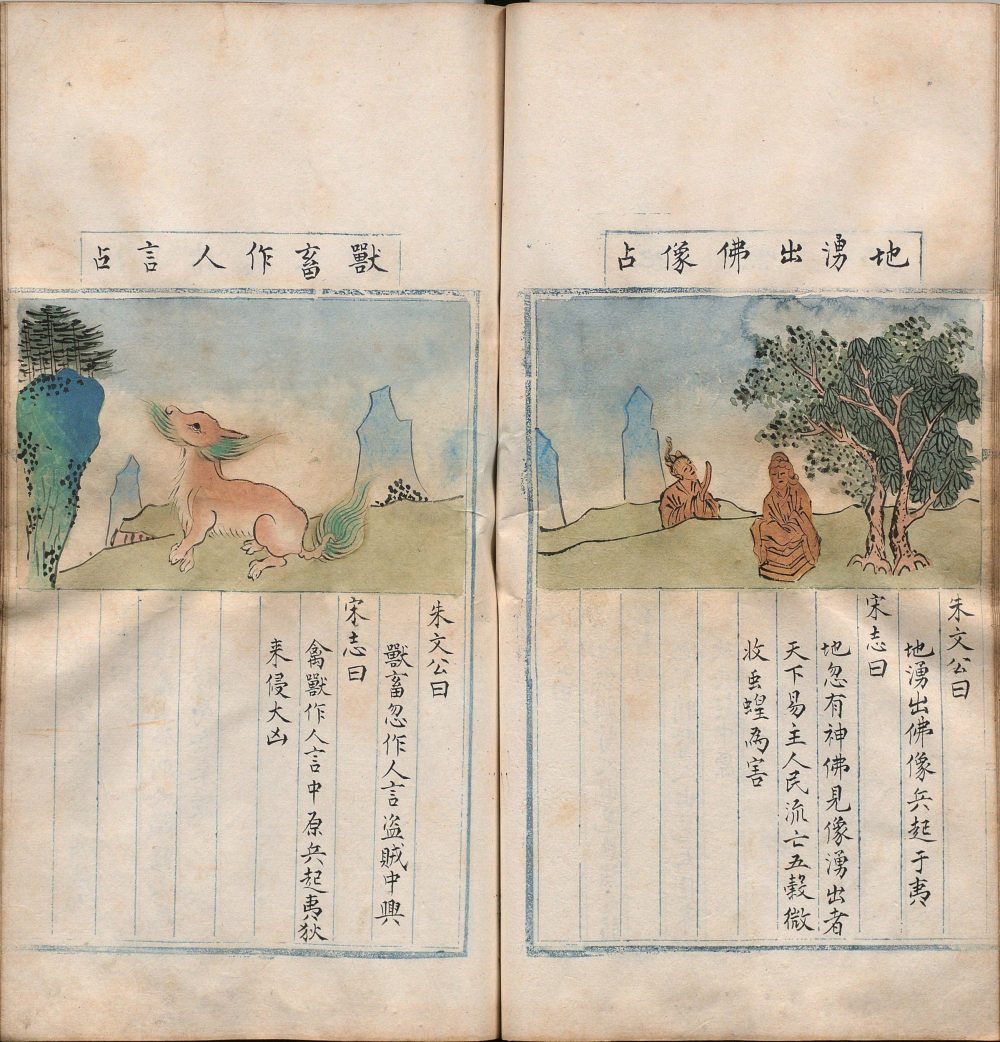 地湧出佛像占
朱文公曰
地湧出佛像兵起于夷
宋志曰
地忽有神佛見像湧出者
天下易主人民流亡五穀微
收虫蝗為害
獸畜作人言占
朱文公曰
獸畜忽作人言盜賊中興
宋志曰
禽獸作人言中原兵起夷狄
来侵大凶